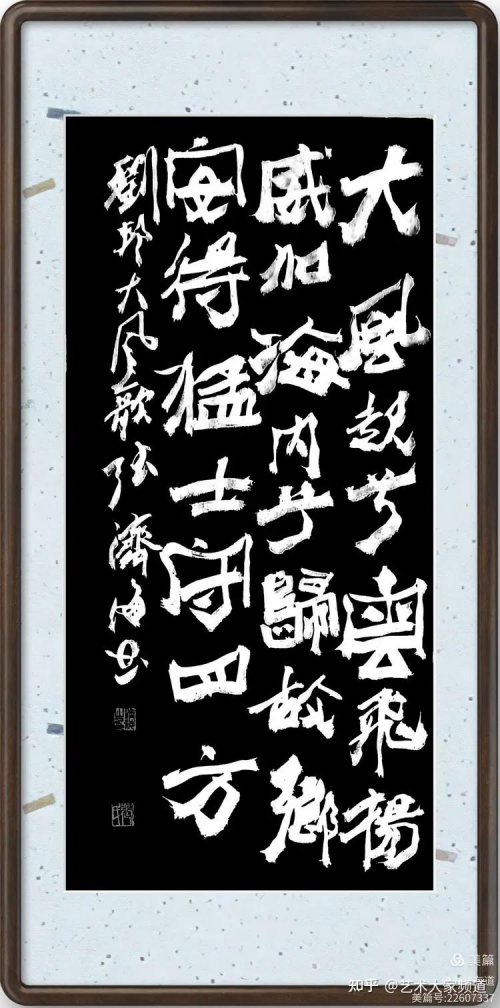 大風起兮雲飛揚
威加海内兮歸故鄉
安得猛士守四方
劉邦大风歌 張濟海书
美篇
知乎 @艺术人家频道
美篇号:22607337